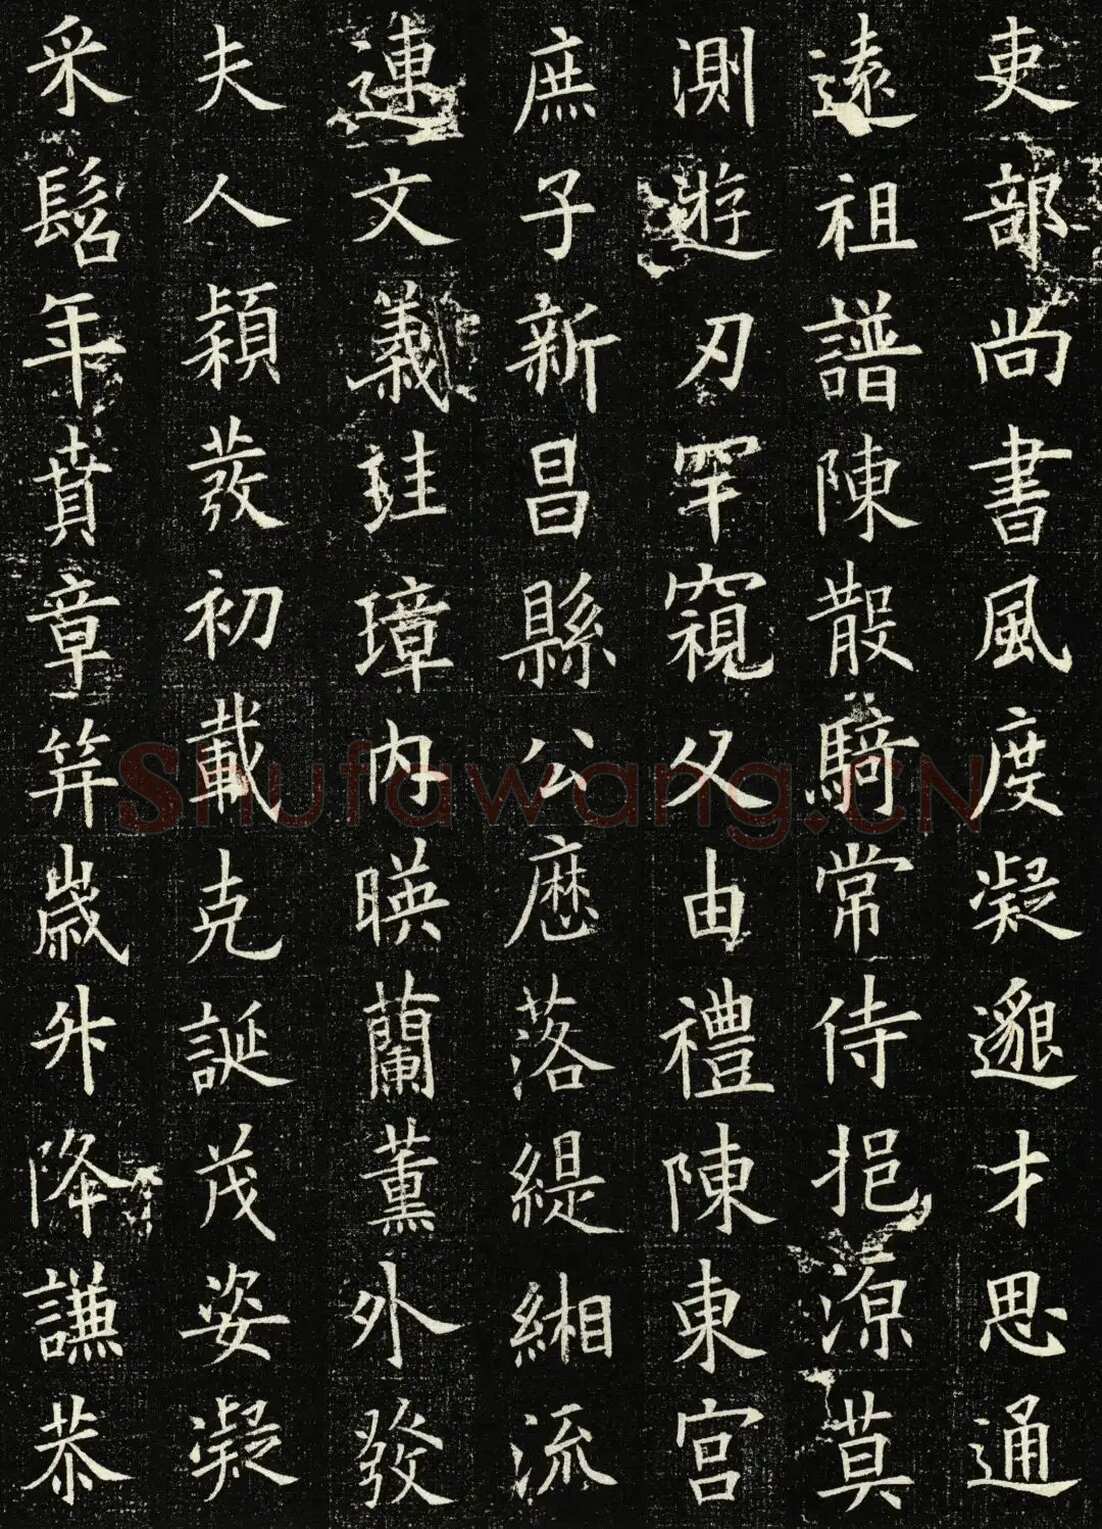 吏部尚書風度凝邈才思通
遠祖譜陳散騎常侍挹源莫
測遊刃罕窺父由禮陳東宮
庶子新昌縣公歷落緹緗流
連文義珪璋內暎蘭薰外發
夫人穎發初載克誕茂姿凝
采髫年蕡章笄歲升降謙恭
shufawang.cn